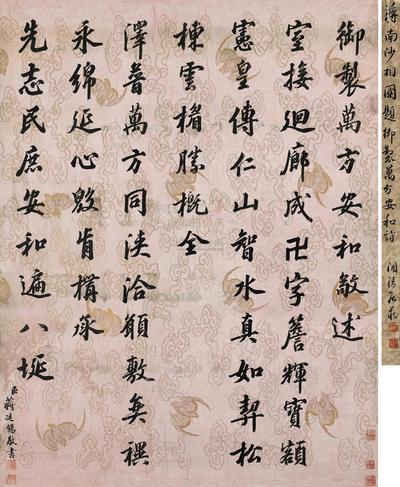 蔣南沙相國題御製萬方安和詩
御製萬方安和敬述
室接迴廊成卍字簷輝寶額
憲皇傳仁山智水真如契松
棟雲楣勝概全
澤普萬方同浹洽願敷奕禩
永綿延心殷肯構承
先志民庶安和遍八埏
臣蔣廷錫敬書